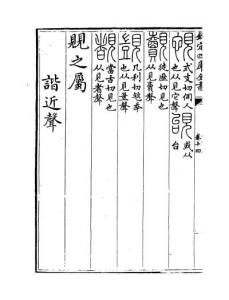 欽定四庫全書
卷十四
式支切伺人也从見它聲
或从台
徒歷切見也从見賣聲
几利切欲幸也从見豈聲
當古切見也从見者聲
之屬
諧近聲